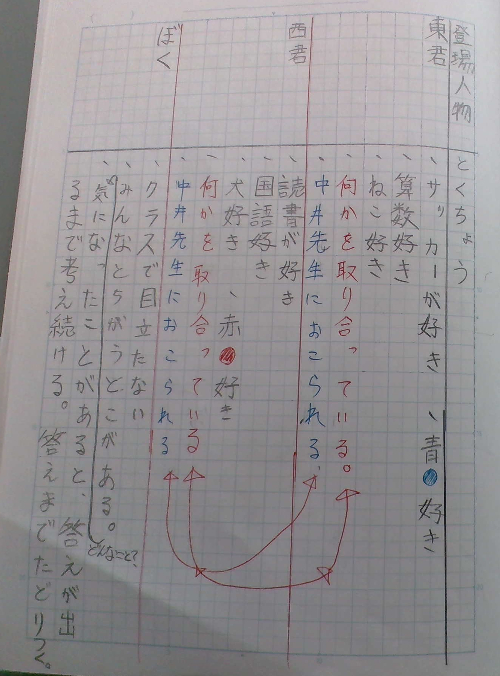 登場人物 とくちょう
東君 、サッカーが好き 、青好き
、算数好き
、ねこ好き
何かを取り合っている。
、中井先生におこられる、
西君 、読書が好き
、国語好き
、犬好き 、赤好き
何かを取り合っている
、中井先生におこられる
ぼく 、クラスで目立たない
、みんなとちがうとこがある。
どんなこと?
、気になったことがあると、答えが出
るまで考え続ける。答えまでたどりつく。